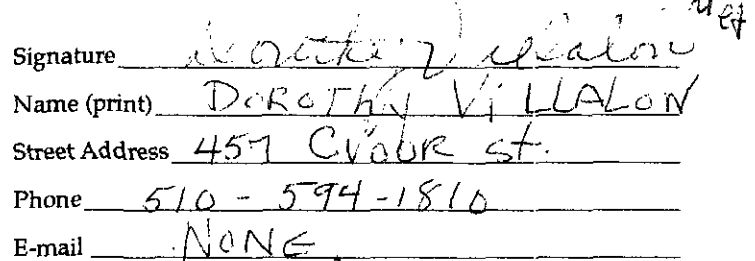 Signature Dorothy Villalon
Name (print) DOROTHY VILLALON
Street Address 457 st.
Phone 510 - 594 - 1810
E-mail NONE